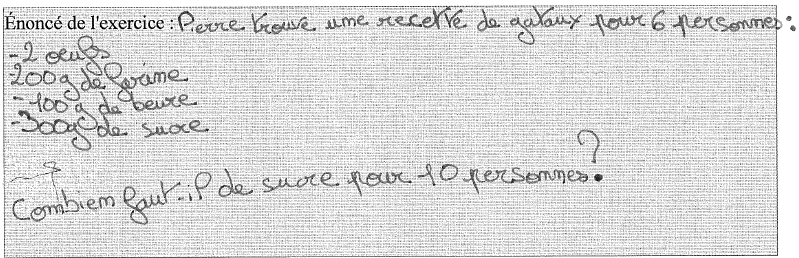 Énoncé de l'exercice : Pierre trouve une recette de gataux pour 6 personnes :
- 2 oeufs
200g de farine
- 100 g de beure
- 300g de sucre
Combien faut-il de sucre pour 10 personnes ?